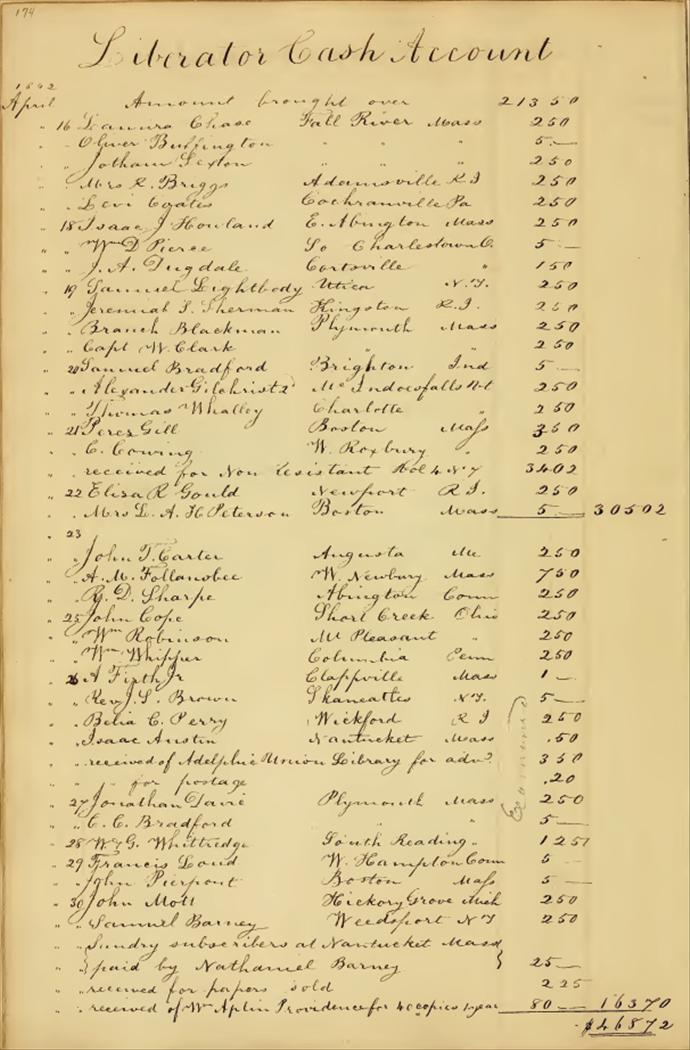 174
Liberator Cash Account
1842
April Amount brought over 213 50
" 16 Leamira Chase Fall River Mass 2 50
" " Oliver Buffington " " " 5 —
" " Jotham Sexton " " " 2 50
" " Mrs R. Briggs Adamsville R I 2 50
" " Levi Coates Cochranville Pa 2 50
" 18 Isaac J Howland E. Abington Mass 2 50
" " Wm D Pierce So Charlestown O. 5 —
" " J. A. Dugdale Cortsville " 1 50
" 19 Samuel Lightbody Utica N.Y. 2 50
" " Jeremiah S. Sherman Kingston R.I. 2 50
" " Branch Blackman Plymouth Mass 2 50
" " Capt W. Clark " " 2 50
" 20 Samuel Bradford Brighton Ind 5 —
" " Alexander Gilchrist Mc Indoesfalls Vt 2 50
" " Thomas Whalley Charlotte " 2 50
" 21 Perez Gill Boston Mass 3 50
" " C. Cowing W. Roxbury " 2 50
" " received for Non Resistant Vol 4 34 02
" 22 Eliza R Gould Newport R I. 2 50
" " Mrs L. A. H Peterson Boston Mass 5 — 305 02
" 23
" " John T. Carter Augusta Me 2 50
" " A. M. Follansbee W. Newbury Mass 7 50
" " G. D. Sharpe Abington Conn 2 50
" 25 John Cope Short Creek Ohio 2 50
" " Wm Robinson Mt Pleasant " 2 50
" " Wm Whipper Columbia Penn 2 50
" 26 A Firth Jr Clappville Mass 1 —
" " Rev J. S. Brown Skaneattes N.Y. 5 —
" " Belia C. Perry Wickford R I 2 50
" " Isaac Austin Nantucket Mass .50
" " received of Adelphic Union Library for adv. 3 50
" " " for postage .20
" 27 Jonathan Davie Plymouth Mass 2 50
" " C. C. Bradford " " 5 —
" 28 W & G. Whittredge South Reading " 1 25
" 29 Francis Loud W. Hampton Conn 5 —
" " John Pierpont Boston Mass 5 —
" 30 John Mott Hickory Grove Mich 2 50
" " Samuel Barney Weedsport N Y 2 50
" " Sundry subscribers at Nantucket Mass
" " paid by Nathaniel Barney 25 —
" " received for papers sold 2 25
" " received of Wm Aplin Providence for 40 copies 1 year 80 — 163 70
$468 72
Examined